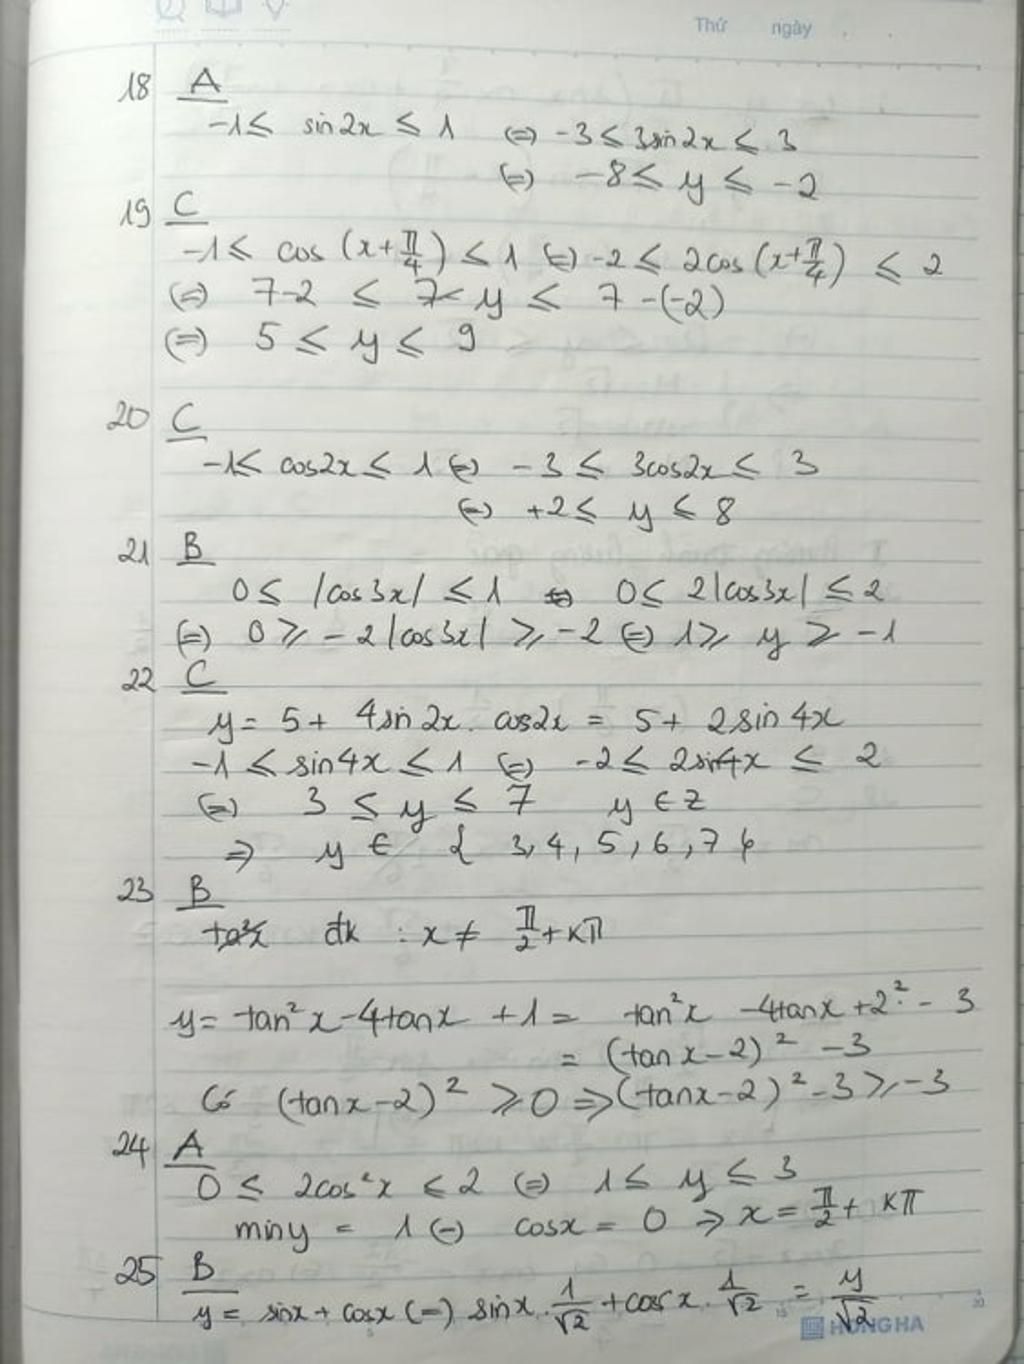 Thứ ngày
18 A
-1 ≤ sin2x ≤ 1 (=) -3 ≤ 3sin2x ≤ 3
(=) -8 ≤ y ≤ -2
19 C
-1 ≤ cos (x+π/4) ≤ 1 (=) -2 ≤ 2cos (x+π/4) ≤ 2
(=) 7-2 ≤ y ≤ 7 -(-2)
(=) 5 ≤ y ≤ 9
20 C
-1 ≤ cos2x ≤ 1 (=) -3 ≤ 3cos2x ≤ 3
(=) +2 ≤ y ≤ 8
21 B
0 ≤ |cos3x| ≤ 1 (=) 0 ≤ 2|cos3x| ≤ 2
(=) 0 ≥ -2|cos3x| ≥ -2 (=) 1 ≥ y ≥ -1
22 C
y = 5 + 4sin2x. cos2x = 5 + 2sin4x
-1 ≤ sin4x ≤ 1 (=) -2 ≤ 2sin4x ≤ 2
(=) 3 ≤ y ≤ 7 y ∈ Z
=> y ∈ { 3, 4, 5, 6, 7 }
23 B
đk : x ≠ π/2 + kπ
y = tan²x - 4tanx + 1 = tan²x - 4tanx + 2² - 3
= (tanx-2)² - 3
Có (tanx-2)² ≥ 0 => (tanx-2)² - 3 ≥ -3
24 A
0 ≤ 2cos²x ≤ 2 (=) 1 ≤ y ≤ 3
min y = 1 (=) cosx = 0 => x = π/2 + kπ
25 B
y = sinx + cosx (=) sinx . 1/√2 + cosx . 1/√2 = y/√2
HONG HA